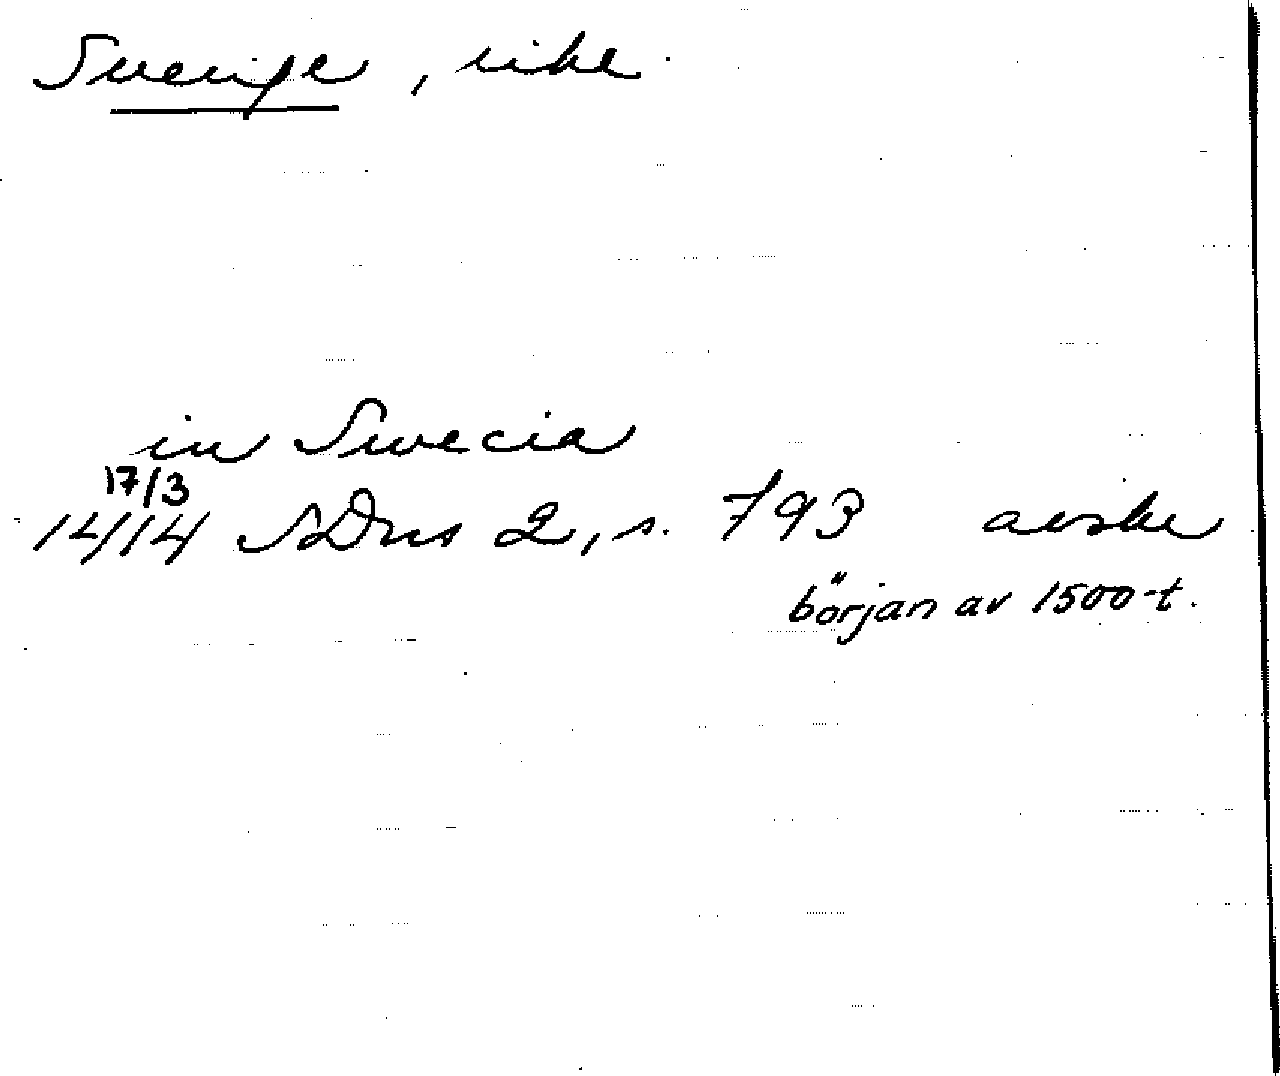 Sverige, rike
in Swecia
17/3
1414 SDns 2, s. 793 avskr
början av 1500-t.